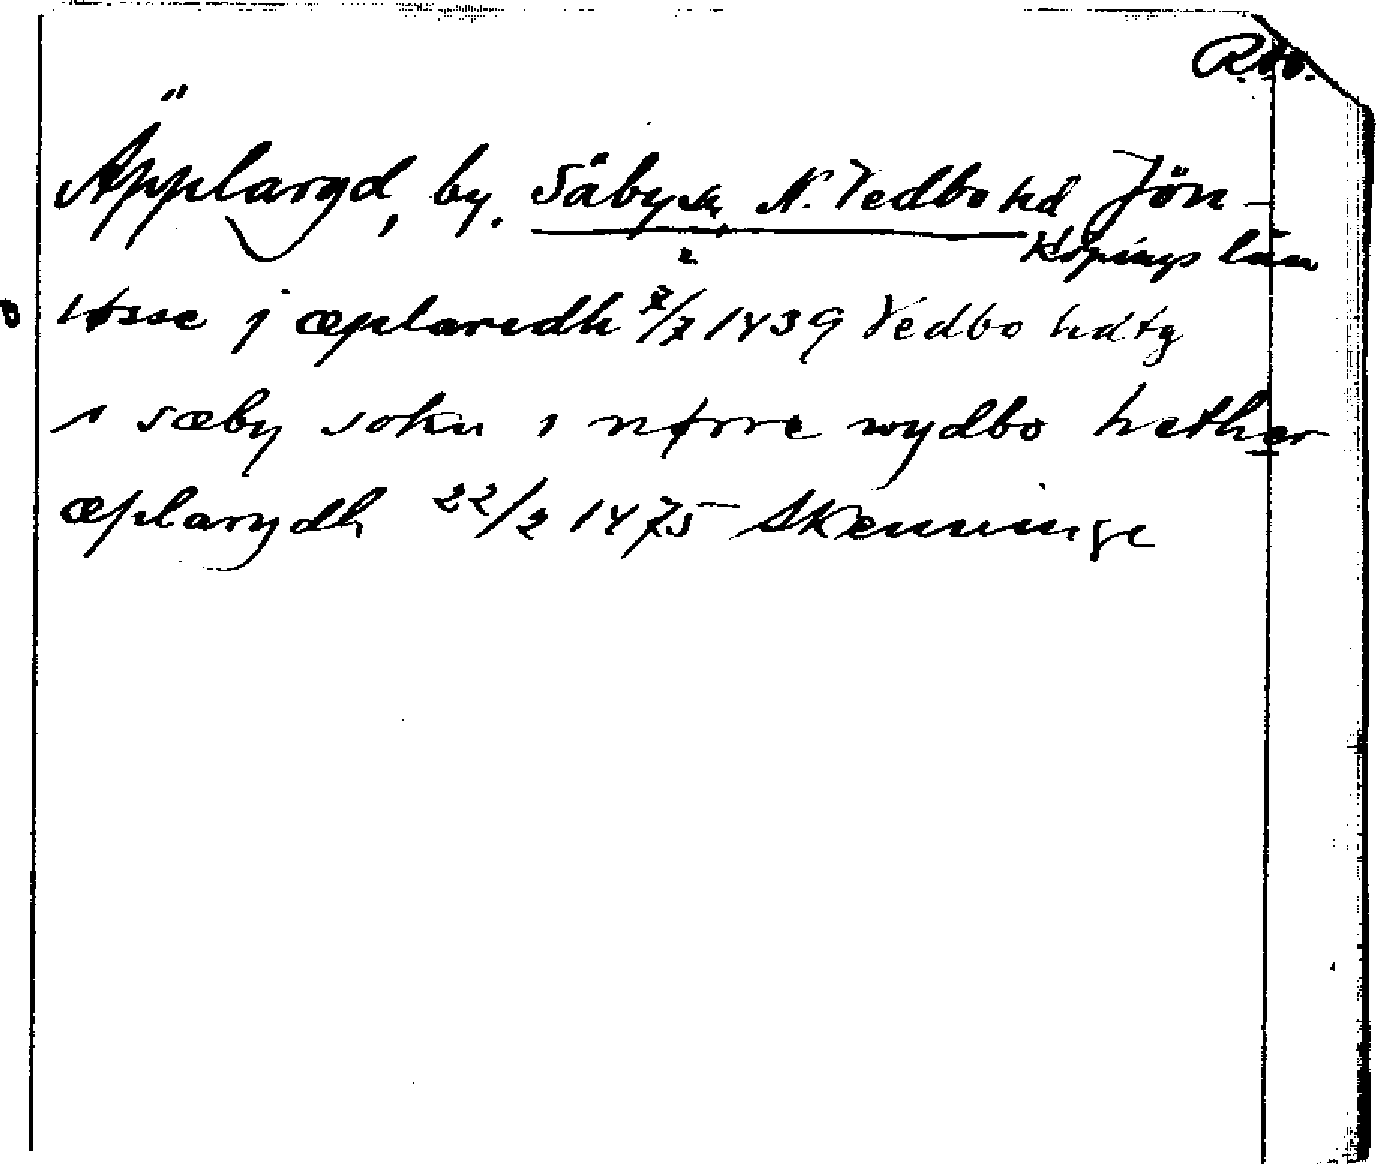 RAp.
Äpplaryd, by. Säby sn, N. Vedbo hd Jön-
köpings län
tøsse j æplaredh 7/7 1439 Vedbo hdtg
i sæby sokn i nørre wydbo hether
æplarydh 22/2 1475 Skenninge